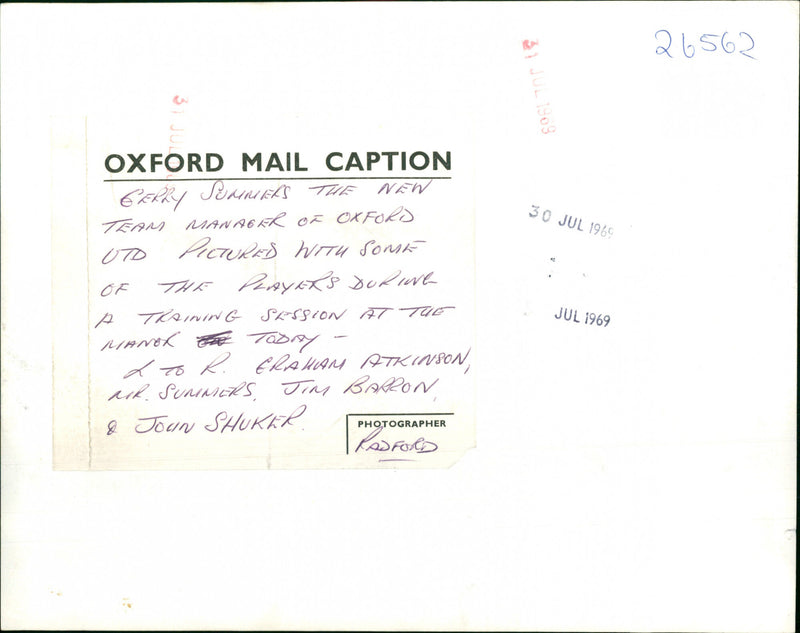 26562
31 JUL 1969
31 JUL
OXFORD MAIL CAPTION
GERRY SUMMERS THE NEW
TEAM MANAGER OF OXFORD
UTD PICTURED WITH SOME
OF THE PLAYERS DURING
A TRAINING SESSION AT THE
MANOR TODAY –
L TO R. GRAHAM ATKINSON,
MR. SUMMERS, JIM BARRON,
& JOHN SHUKER.
PHOTOGRAPHER
RADFORD
30 JUL 1969
JUL 1969